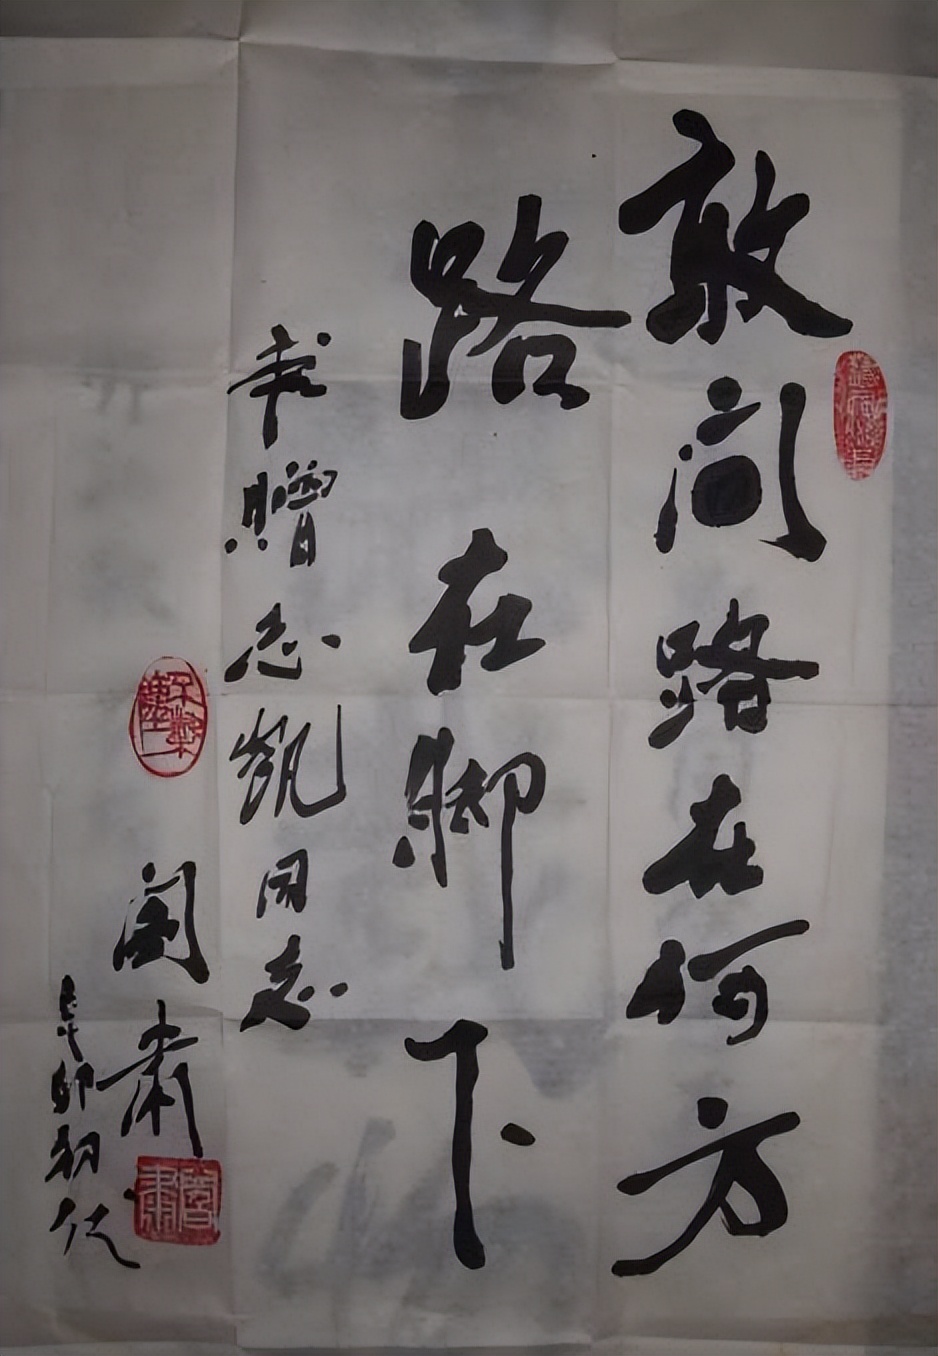 敢问路在何方
路在脚下
书贈志凯同志
阎肃
卯初